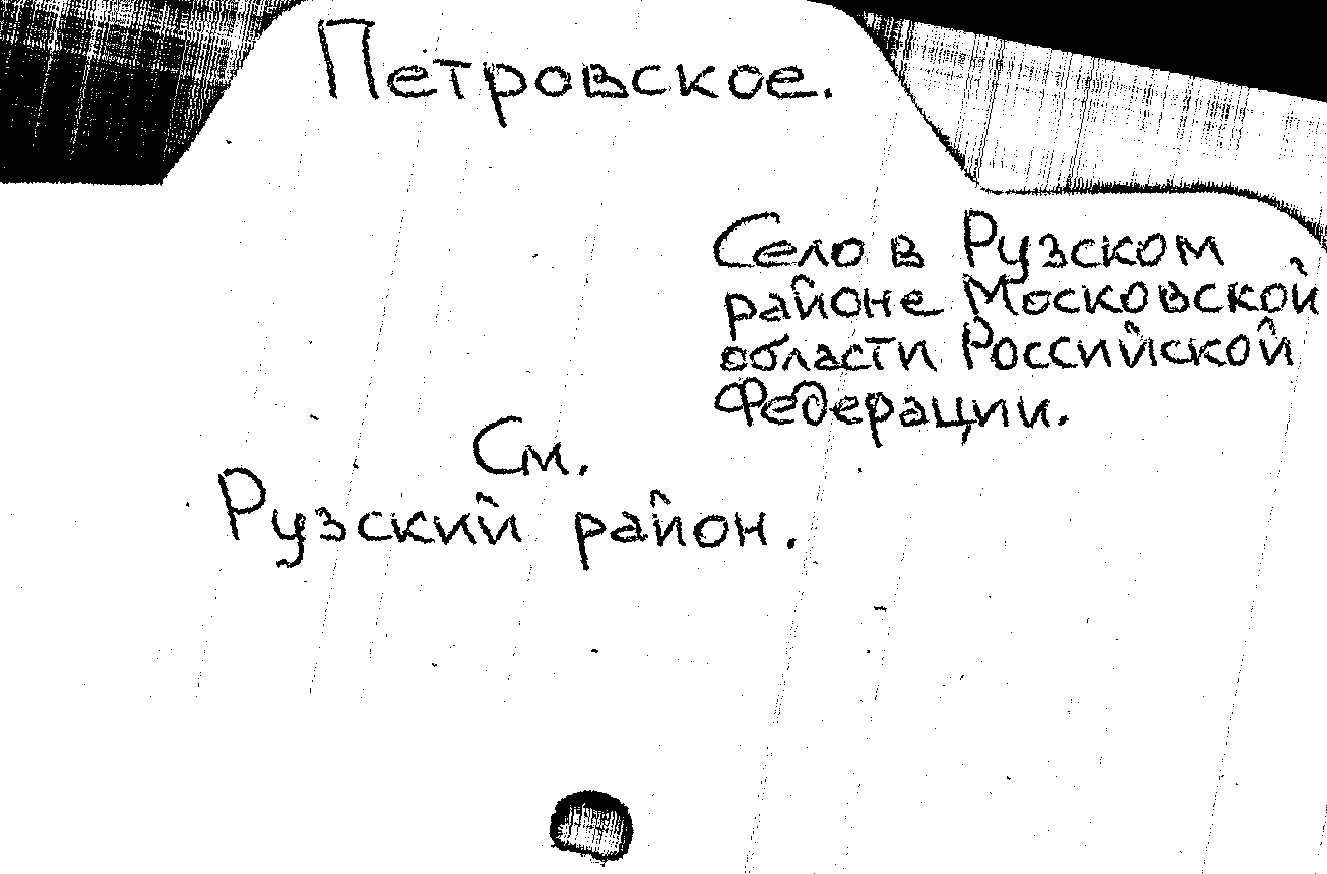 Петровское.
Село в Рузском
районе Московской
области Российской
Федерации.
См.
Рузский район.